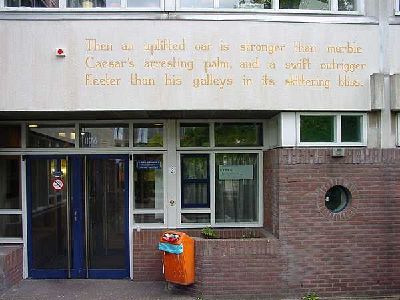 Then an uplifted oar is stronger than marble
Caesar's arresting palm, and a swift outrigger
fleeter than his galleys in its skittering bliss.